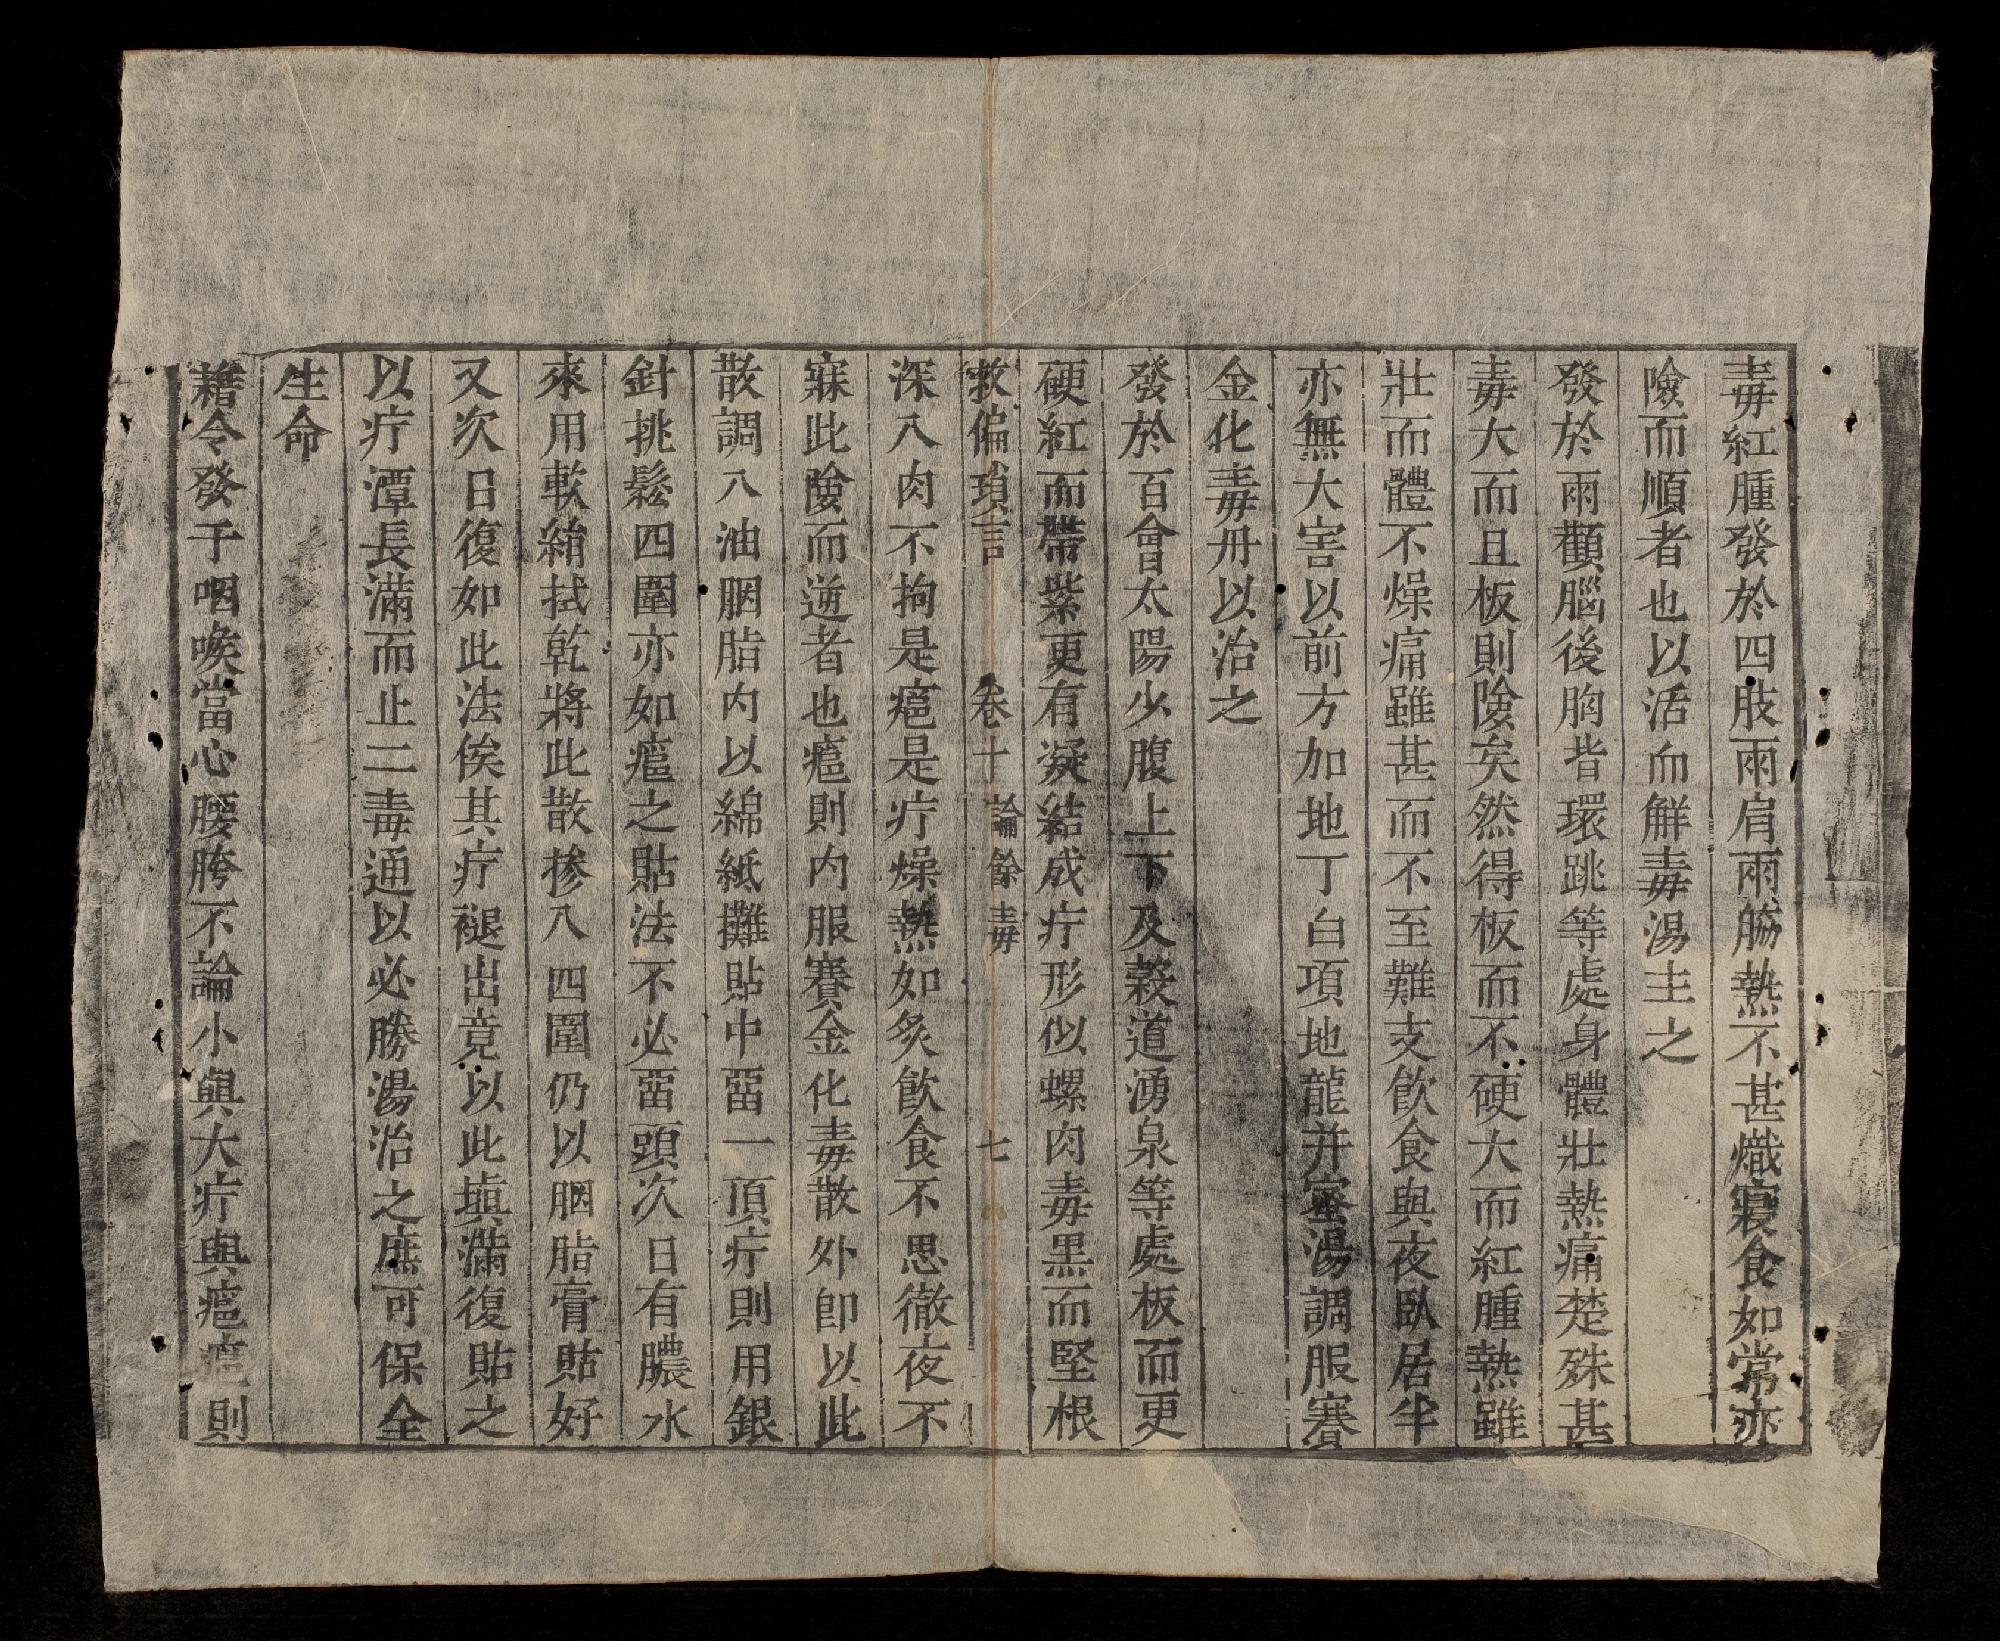 毒紅腫發於四肢兩肩兩脇熱不甚熾寢食如常亦
險而順者也以活血解毒湯主之
發於兩顴腦後胸背環跳等處身體壯熱痛楚殊甚
毒大而且板則險矣然得板而不硬大而紅腫熱雖
壯而體不燥痛雖甚而不至難支飲食與夜臥居半
亦無大害以前方加地丁白項地龍并蜜湯調服賽
金化毒丹以治之
發於百會太陽少腹上下及穀道湧泉等處板而更
硬紅而帶紫更有凝結成疔形似螺肉毒黑而堅根
救偏瑣言 卷十 論餘毒 七
深入肉不拘是瘢是疔燥熱如炙飲食不思徹夜不
寐此險而逆者也瘢則內服賽金化毒散外卽以此
散調入油胭脂內以綿紙攤貼中畱一頂疔則用銀
針挑鬆四圍亦如瘢之貼法不必畱頭次日有膿水
來用軟絹拭乾將此散摻入四圍仍以胭脂膏貼好
又次日復如此法俟其疔褪出竟以此塡滿復貼之
以疔潭長滿而止二毒通以必勝湯治之庶可保全
生命
藉令發于咽喉當心腰胯不論小與大疔與瘢瘢則